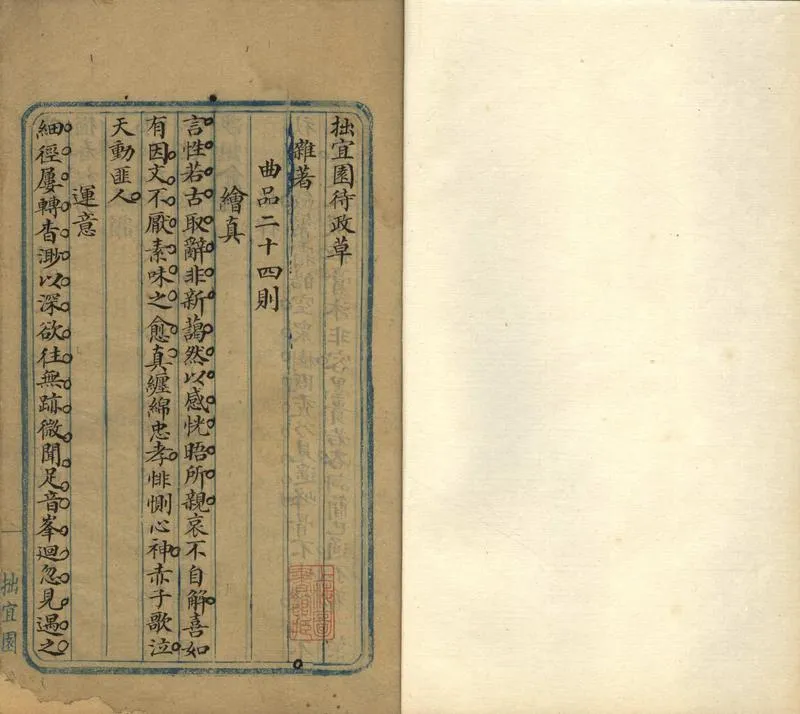 拙宜園待政草
雜著
曲品二十四則
繪真
言性若古取辭非新藹然以感恍晤所親哀不自解喜如
有因文不厭素味之愈真纏綿忠孝悱惻心神赤子歌泣
天動匪人
運意
細徑屢轉杳渺以深欲往無跡微聞足音峯迴忽見遇之
拙宜園